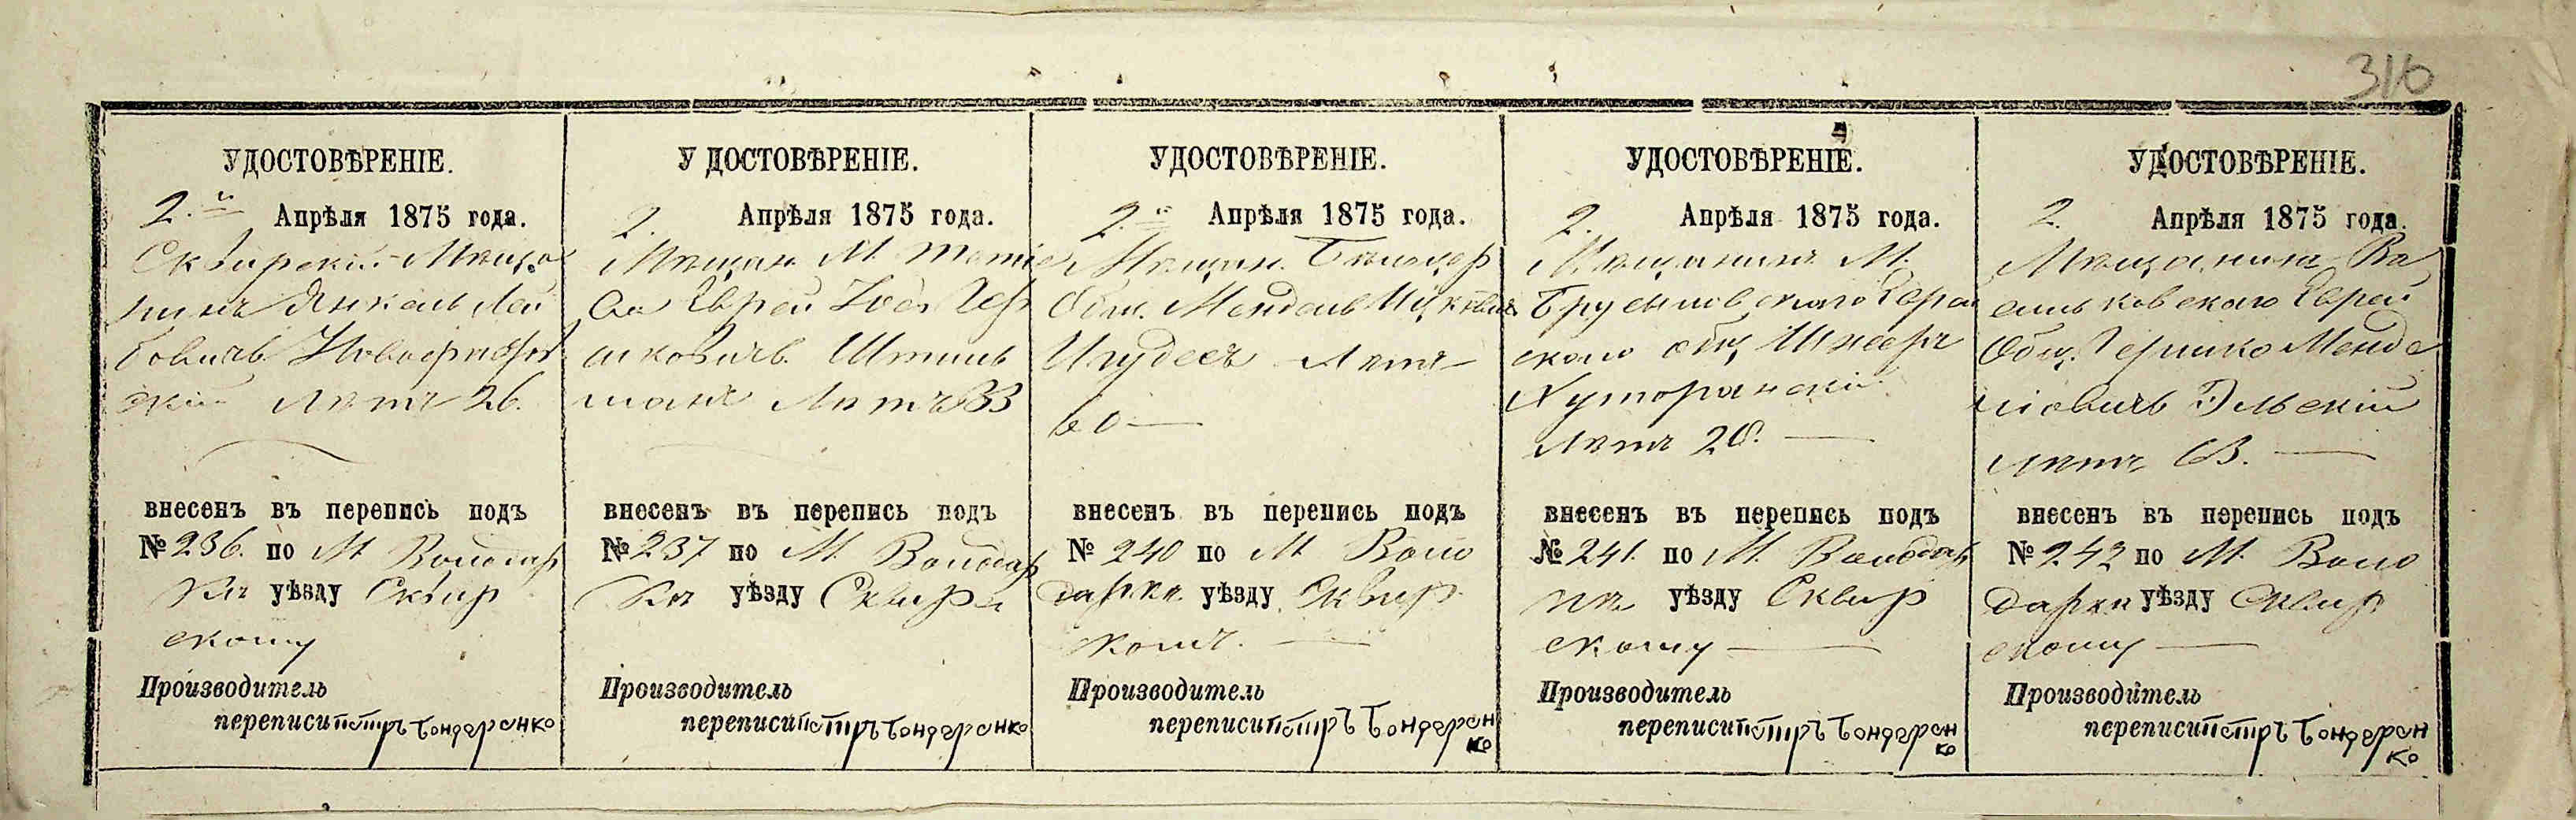 316
УДОСТОВѢРЕНІЕ.
2.й Апрѣля 1875 года.
Сквирскій Мѣща
нинъ Янкель Лей
бовичъ
скій Лѣтъ 26.
внесенъ въ перепись подъ
№ 236. по М. Володар
кѣ уѣзду Сквир
скому
Производитель
переписи Петръ Бондаренко
УДОСТОВѢРЕНІЕ.
2. Апрѣля 1875 года.
Мѣщан. М.
Еврей Іосъ Гер
шковичъ Штиль
манъ Лѣтъ 33
внесенъ въ перепись подъ
№ 237 по М. Володар
кѣ уѣзду Сквир.
Производитель
переписи Петръ Бондаренко
УДОСТОВѢРЕНІЕ.
2.й Апрѣля 1875 года.
Мѣщан. Бѣлоцер
Общ. Мендель Ицковичъ
Лѣтъ
60
внесенъ въ перепись подъ
№ 240 по М. Воло
даркѣ уѣзду Сквир.
Производитель
переписи Петръ Бондарен
ко
УДОСТОВѢРЕНІЕ.
2. Апрѣля 1875 года.
Мѣщанинъ М.
Брусиловскаго Еврей
скаго общ Шнееръ
Хуторянскій
лѣтъ 28.
внесенъ въ перепись подъ
№ 241. по М. Володар
кѣ уѣзду Сквир
скому
Производитель
переписи Петръ Бондарен
ко
УДОСТОВѢРЕНІЕ.
2. Апрѣля 1875 года.
Мѣщанинъ Ва
сильковскаго Еврей
Общ. Гершко Менде
ліовичъ Эльскій
лѣтъ 63.
внесенъ въ перепись подъ
№ 242 по М. Воло
даркѣ уѣзду Сквир
скому
Производитель
переписи Петръ Бондарен
ко